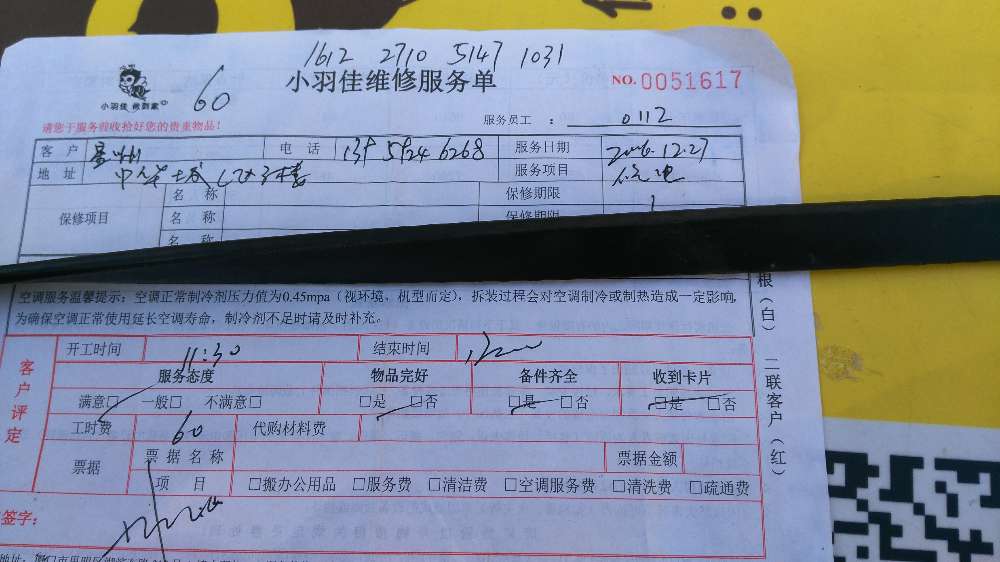 1612 2710 5147 1031
小羽佳维修服务单 NO.0051617
小羽佳 做到家
60
请您于服务前收拾好您的贵重物品！ 服务员工： 0112
客户 电话 服务日期 2016.12.27
地址 服务项目
保修项目 名称 保修期限
名称 保修期限
名称
空调服务温馨提示：空调正常制冷剂压力值为0.45mpa（视环境、机型而定），拆装过程会对空调制冷或制热造成一定影响,
为确保空调正常使用延长空调寿命，制冷剂不足时请及时补充。
根（白） 二联客户（红）
客户评定
开工时间 11:30 结束时间
服务态度 物品完好 备件齐全 收到卡片
满意□ 一般□ 不满意□ □是 □否 □是 □否 □是 □否
工时费 60 代购材料费
票据 票据名称 票据金额
项目 □搬办公用品 □服务费 □清洁费 □空调服务费 □清洗费 □疏通费
签字：